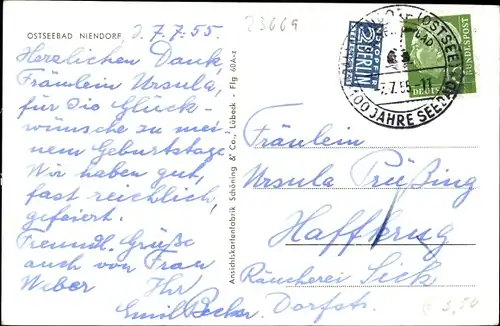 OSTSEEBAD NIENDORF
23669
d. 7.7.55.
Herzlichen Dank,
Fräulein Ursula,
für Die Glück-
wünsche zu mei-
nem Geburtstage.
Wir haben gut,
fast reichlich,
gefeiert.
Freundl. Grüße
auch von Frau
Weber Ihr
Emil Becker
Ansichtskartenfabrik Schöning & Co., Lübeck - Flg 60A-z
NOTOPFER
2 BERLIN
STEUERMARKE
(OSTSEE)
BAD
7.7.55-11
100 JAHRE SEEBAD
DEUTSCHE
BUNDESPOST
Fräulein
Ursula Prüßing
Haffkrug
Räucherei Sick
Dorfstr.
€ 3,50